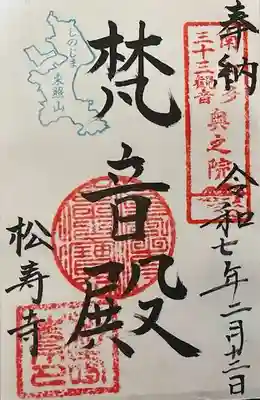 奉納
令和七年二月十二日
三十三観音
奥之院
梵音殿
しのじま
東照山
松寿寺